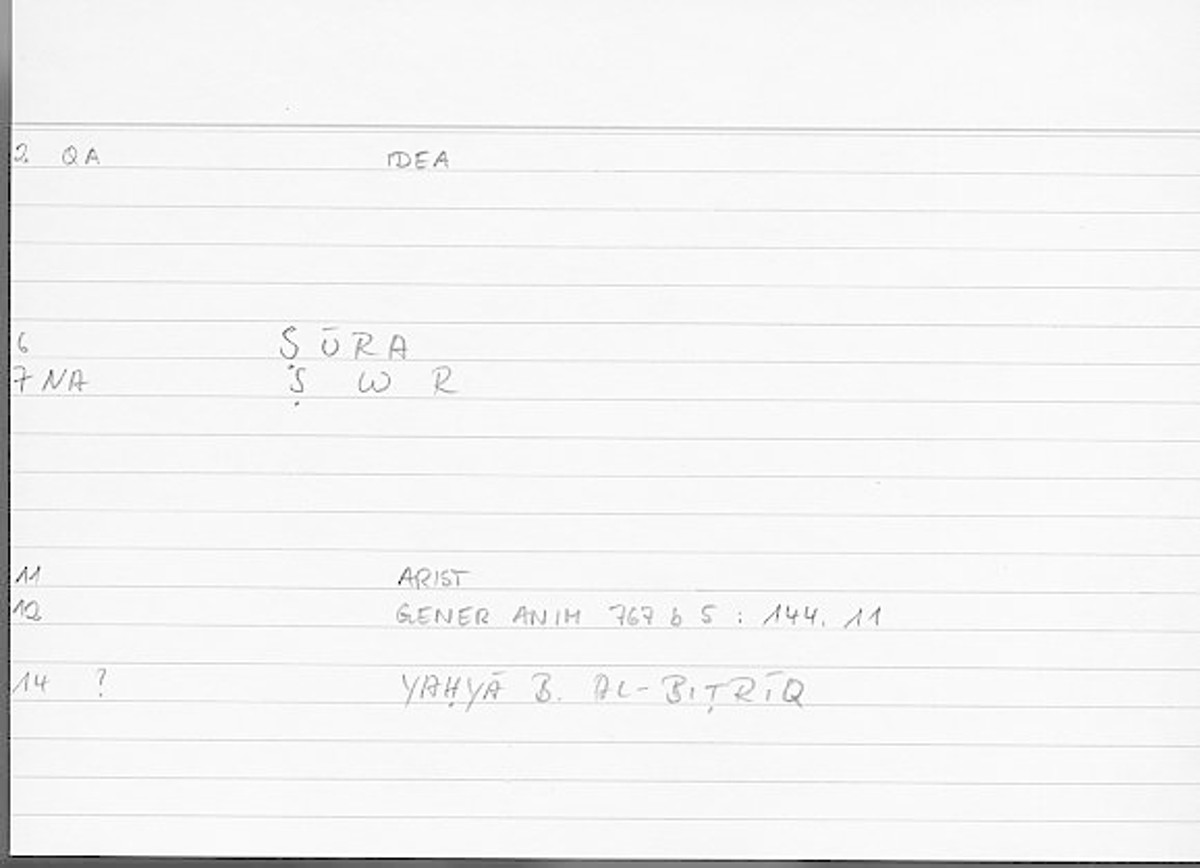 2. QA IDEA
6 ṢŪRA
7 NA Ṣ W R
11 ARIST
12 GENER ANIM 767 b 5 : 144. 11
14 ? YAḤYĀ B. AL-BIṬRĪQ